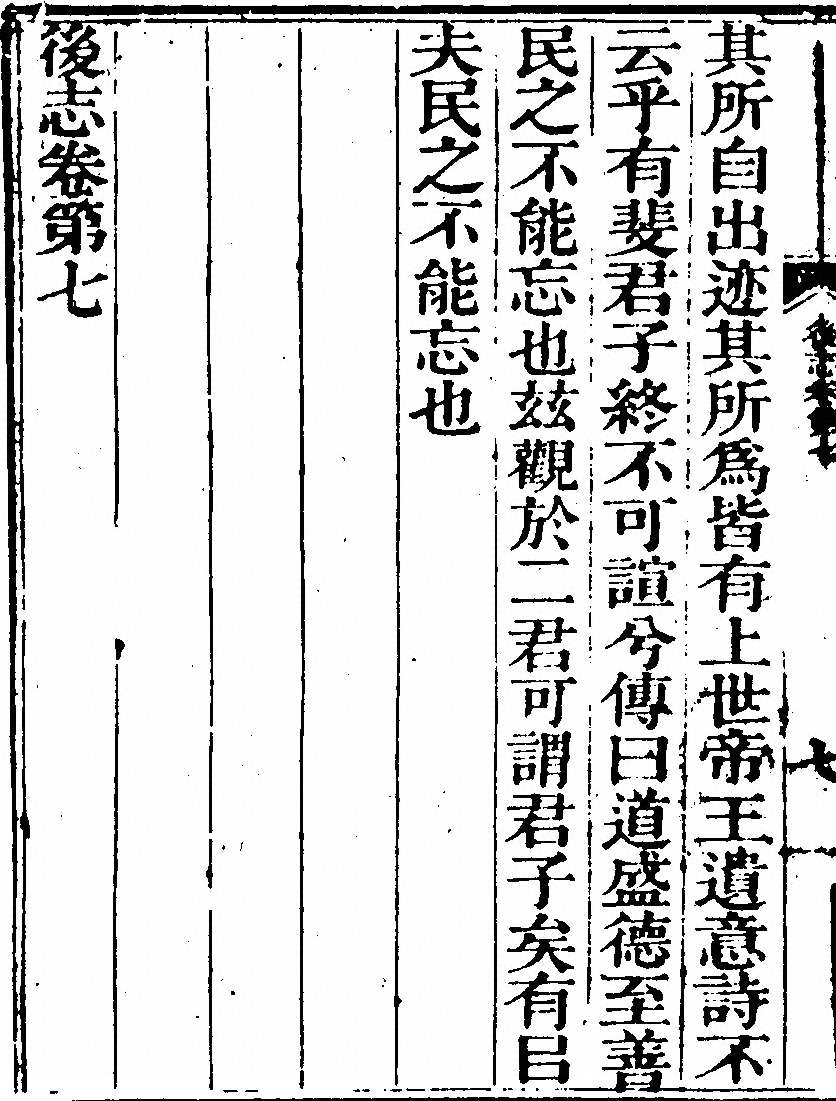 後志卷第七
七
其所自出迹其所爲皆有上世帝王遺意詩不
云乎有斐君子終不可諠兮傳曰道盛德至善
民之不能忘也玆觀於二君可謂君子矣有㠯
夫民之不能忘也
後志卷第七